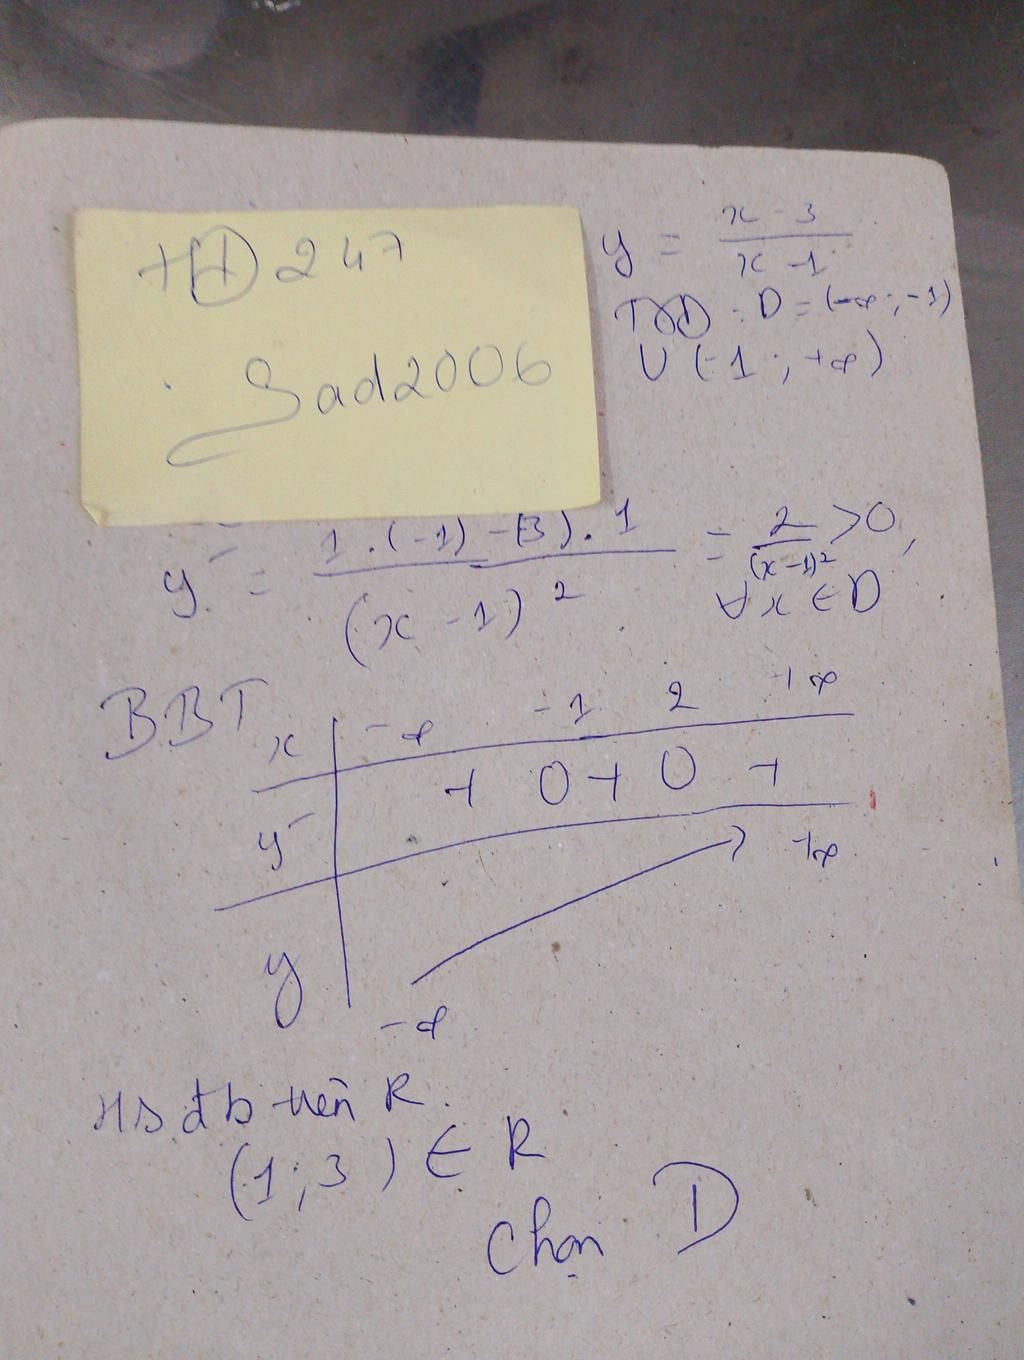 HĐ247
Sad2006
y = x - 3 / x - 1
TXĐ : D = (-∞ ; -1)
∪ (-1 ; +∞)
y' = 1.(-1) - (3).1 / (x - 1)² = 2 / (x-1)² > 0,
∀x ∈ D
BBT
x -∞ -1 2 +∞
y' + 0 + 0 +
y -∞ +∞
HS đb trên R.
(1;3) ∈ R
Chọn D